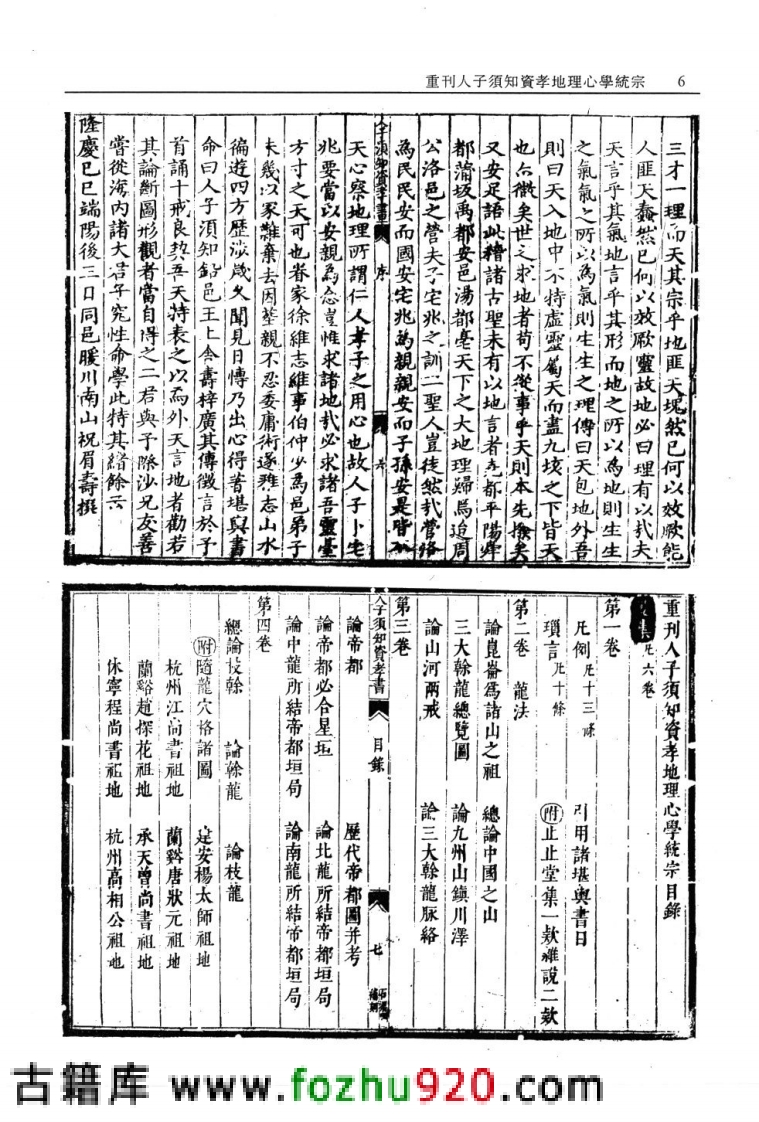 重刊人子須知資孝地理心學統宗 6
三才一理而天其宗乎地匪天塊然已何以效厥能
人匪天蠢然已何以效厥靈故地必曰理有以哉夫
天言乎其氣地言乎其形而地之所以為地則生生
之氣氣之所以為氣則生生之理傳曰天包地外吾
則曰天入地中不特虛靈屬天而盡九垓之下皆天
也亦微矣世之求地者苟不從事乎天則本先撥矣
又安足語此稽諸古聖未有以地言者堯都平陽舜
都蒲坂禹都安邑湯都亳天下之大地理歸焉迨周
公洛邑之營夫子宅兆之訓二聖人豈徒然哉營洛
為民民安而國安宅兆為親親安而子孫安是皆以
人子須知資孝書 序
天心察地理所謂仁人孝子之用心也故人子卜宅
兆要當以安親為念豈惟求諸地哉必求諸吾靈臺
方寸之天可也眷家徐維志維事伯仲少為邑弟子
未幾以家難棄去因塟親不忍委庸術遂雅志山水
徧遊四方歷涉歲久聞見日博乃出心得著堪輿書
命曰人子須知鉛邑王上舍壽梓廣其傳徵言於予
首誦十戒良契吾天特表之以為外天言地者勸若
其論斷圖形觀者當自得之二君與予際沙兄友善
嘗從海內諸大君子究性命學此特其緒餘云
隆慶己巳端陽後三日同邑暖川南山祝眉壽撰
重刊人子須知資孝地理心學統宗目錄
凡六卷
第一卷
凡例 凡十三條 引用諸堪輿書目
瑣言 凡十條 附止止堂集一款雜說二款
第二卷 龍法
論崑崙為諸山之祖 總論中國之山
三大幹龍總覽圖 論九州山鎮川澤
論山河兩戒 論三大幹龍脈絡
第三卷
人子須知資孝書 目錄
論帝都 歷代帝都圖并考
論帝都必合星垣 論北龍所結帝都垣局
論中龍所結帝都垣局 論南龍所結帝都垣局
第四卷
總論枝幹 論幹龍 論枝龍
附隨龍穴格諸圖 建安楊太師祖地
杭州江尚書祖地 蘭谿唐狀元祖地
蘭谿趙探花祖地 承天曾尚書祖地
休寧程尚書祖地 杭州高相公祖地
古籍库 www.fozhu920.com